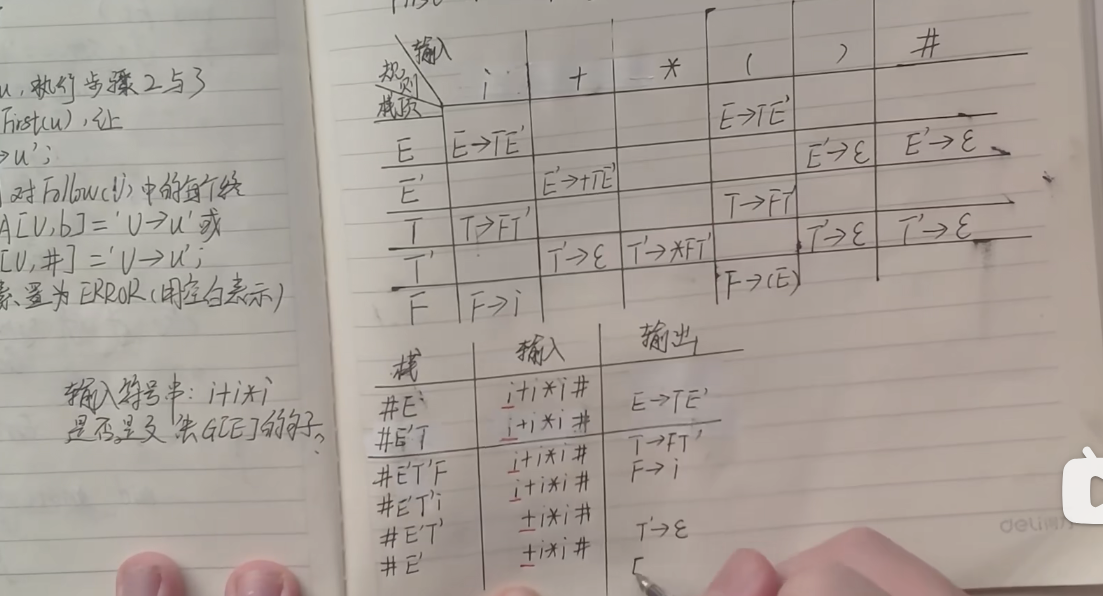 u, 执行步骤2与3
First(u), 让
→u';
对Follow(U)中的每个终
A[U,b]='U→u' 或
[U,#]='U→u';
素置为ERROR(用空白表示)
输入符号串: i+i*i
是否是文法G[E]的句子。
输入
规则
栈顶
i + * ( ) #
E E→TE' E→TE'
E' E'→+TE' E'→ε E'→ε
T T→FT' T→FT'
T' T'→ε T'→*FT' T'→ε T'→ε
F F→i F→(E)
栈 输入 输出
#E i+i*i# E→TE'
#E'T i+i*i# T→FT'
#E'T'F i+i*i# F→i
#E'T'i i+i*i#
#E'T' +i*i# T'→ε
#E' +i*i#
deli